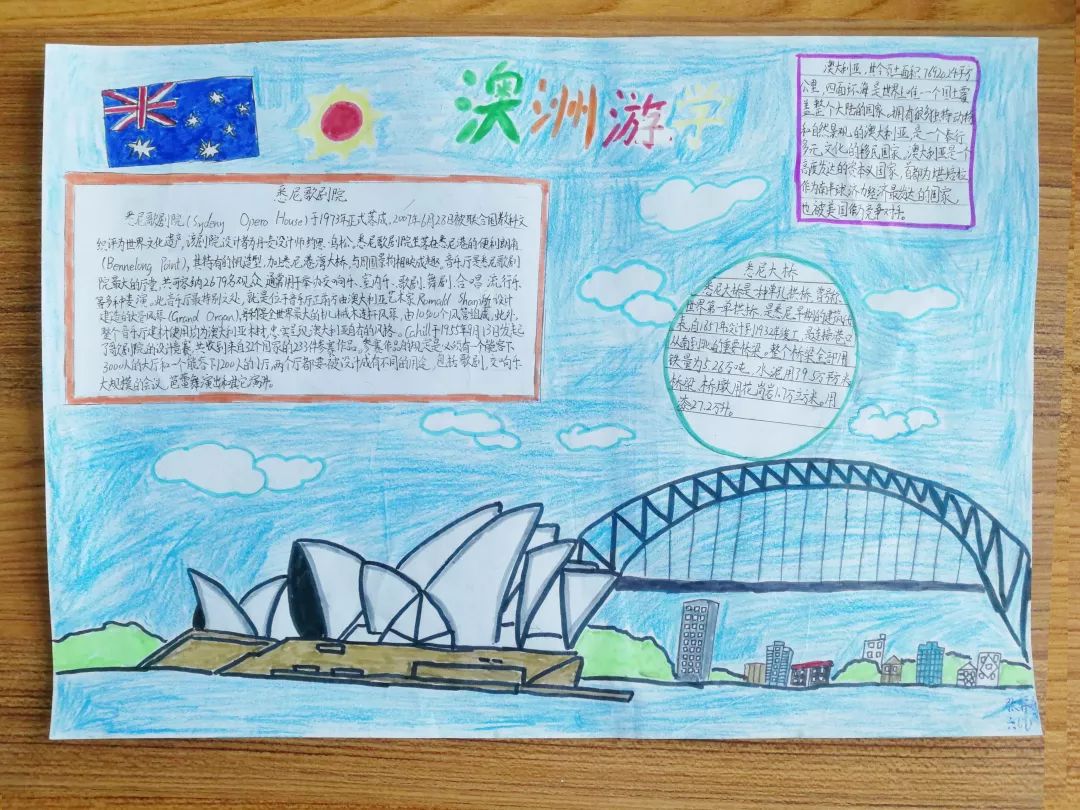 澳洲游学
澳大利亚,其个页土面积7692024平方
公里,四面环海是世界上唯一个国土覆
盖整个大陆的国家。拥有很多独特动物
和自然景观的澳大利亚是一个奉行
多元文化的移民国家。澳大利亚是一个
高度发达的资本主义国家,首都为堪培拉
作为南半球经济最发达的国家,
也被美国
悉尼歌剧院
悉尼歌剧院(Sydeny Opero House)于1973年正式落成,2007年6月28日被联合国教科文
组织评为世界文化遗产,该剧院设计者为丹麦设计师约恩·乌松。悉尼歌剧院坐落在悉尼港的便利朗角
(Bennelong Point),其特有的帆造型,加上悉尼港湾大桥,与周围景物相映成趣。音乐厅是悉尼歌剧
院最大的厅堂,共可容纳2679名观众,通常用于举办交响乐、室内乐、歌剧、舞蹈、合唱、流行乐
等多种表演。此音乐厅最特别之处,就是位于音乐厅正前方由澳大利亚艺术家Ronald Sharp所设计
建造的大管风琴(Grand Organ),号称是全世界最大的机械木连杆风琴,由10500个风管组成,此外,
整个音乐厅建材使用均为澳大利亚木材,忠实呈现澳大利亚自有的风格。Cohill于1955年9月13日发起
了歌剧院的设计竞赛,共收到来自32个国家的233件参赛作品。参赛作品的规定是必须有一个能容下
3000人的大厅和一个能容下1200人的小厅,两个厅都要被设计成有不同的用途,包括歌剧,交响乐
大规模的会议,芭蕾舞演出和其它演讲。
悉尼大桥
悉尼大桥是一种单孔拱桥,曾号称
世界第一单孔拱桥,是悉尼早期的建筑代
表,自1857年设计到1932年竣工,是连接港口
从南到北的重要桥梁。整个桥梁全部用
铁量为5.28万吨,水泥用79.5万平方米
桥梁,桥墩用花岗岩1.7万立方米。用
漆27.2万升。